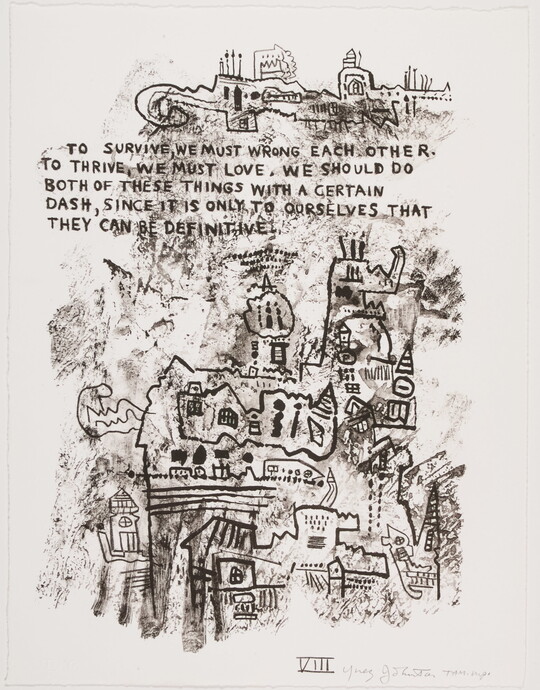 TO SURVIVE, WE MUST WRONG EACH OTHER.
TO THRIVE, WE MUST LOVE. WE SHOULD DO
BOTH OF THESE THINGS WITH A CERTAIN
DASH, SINCE IT IS ONLY TO OURSELVES THAT
THEY CAN BE DEFINITIVE.
VIII Ynez Johnston